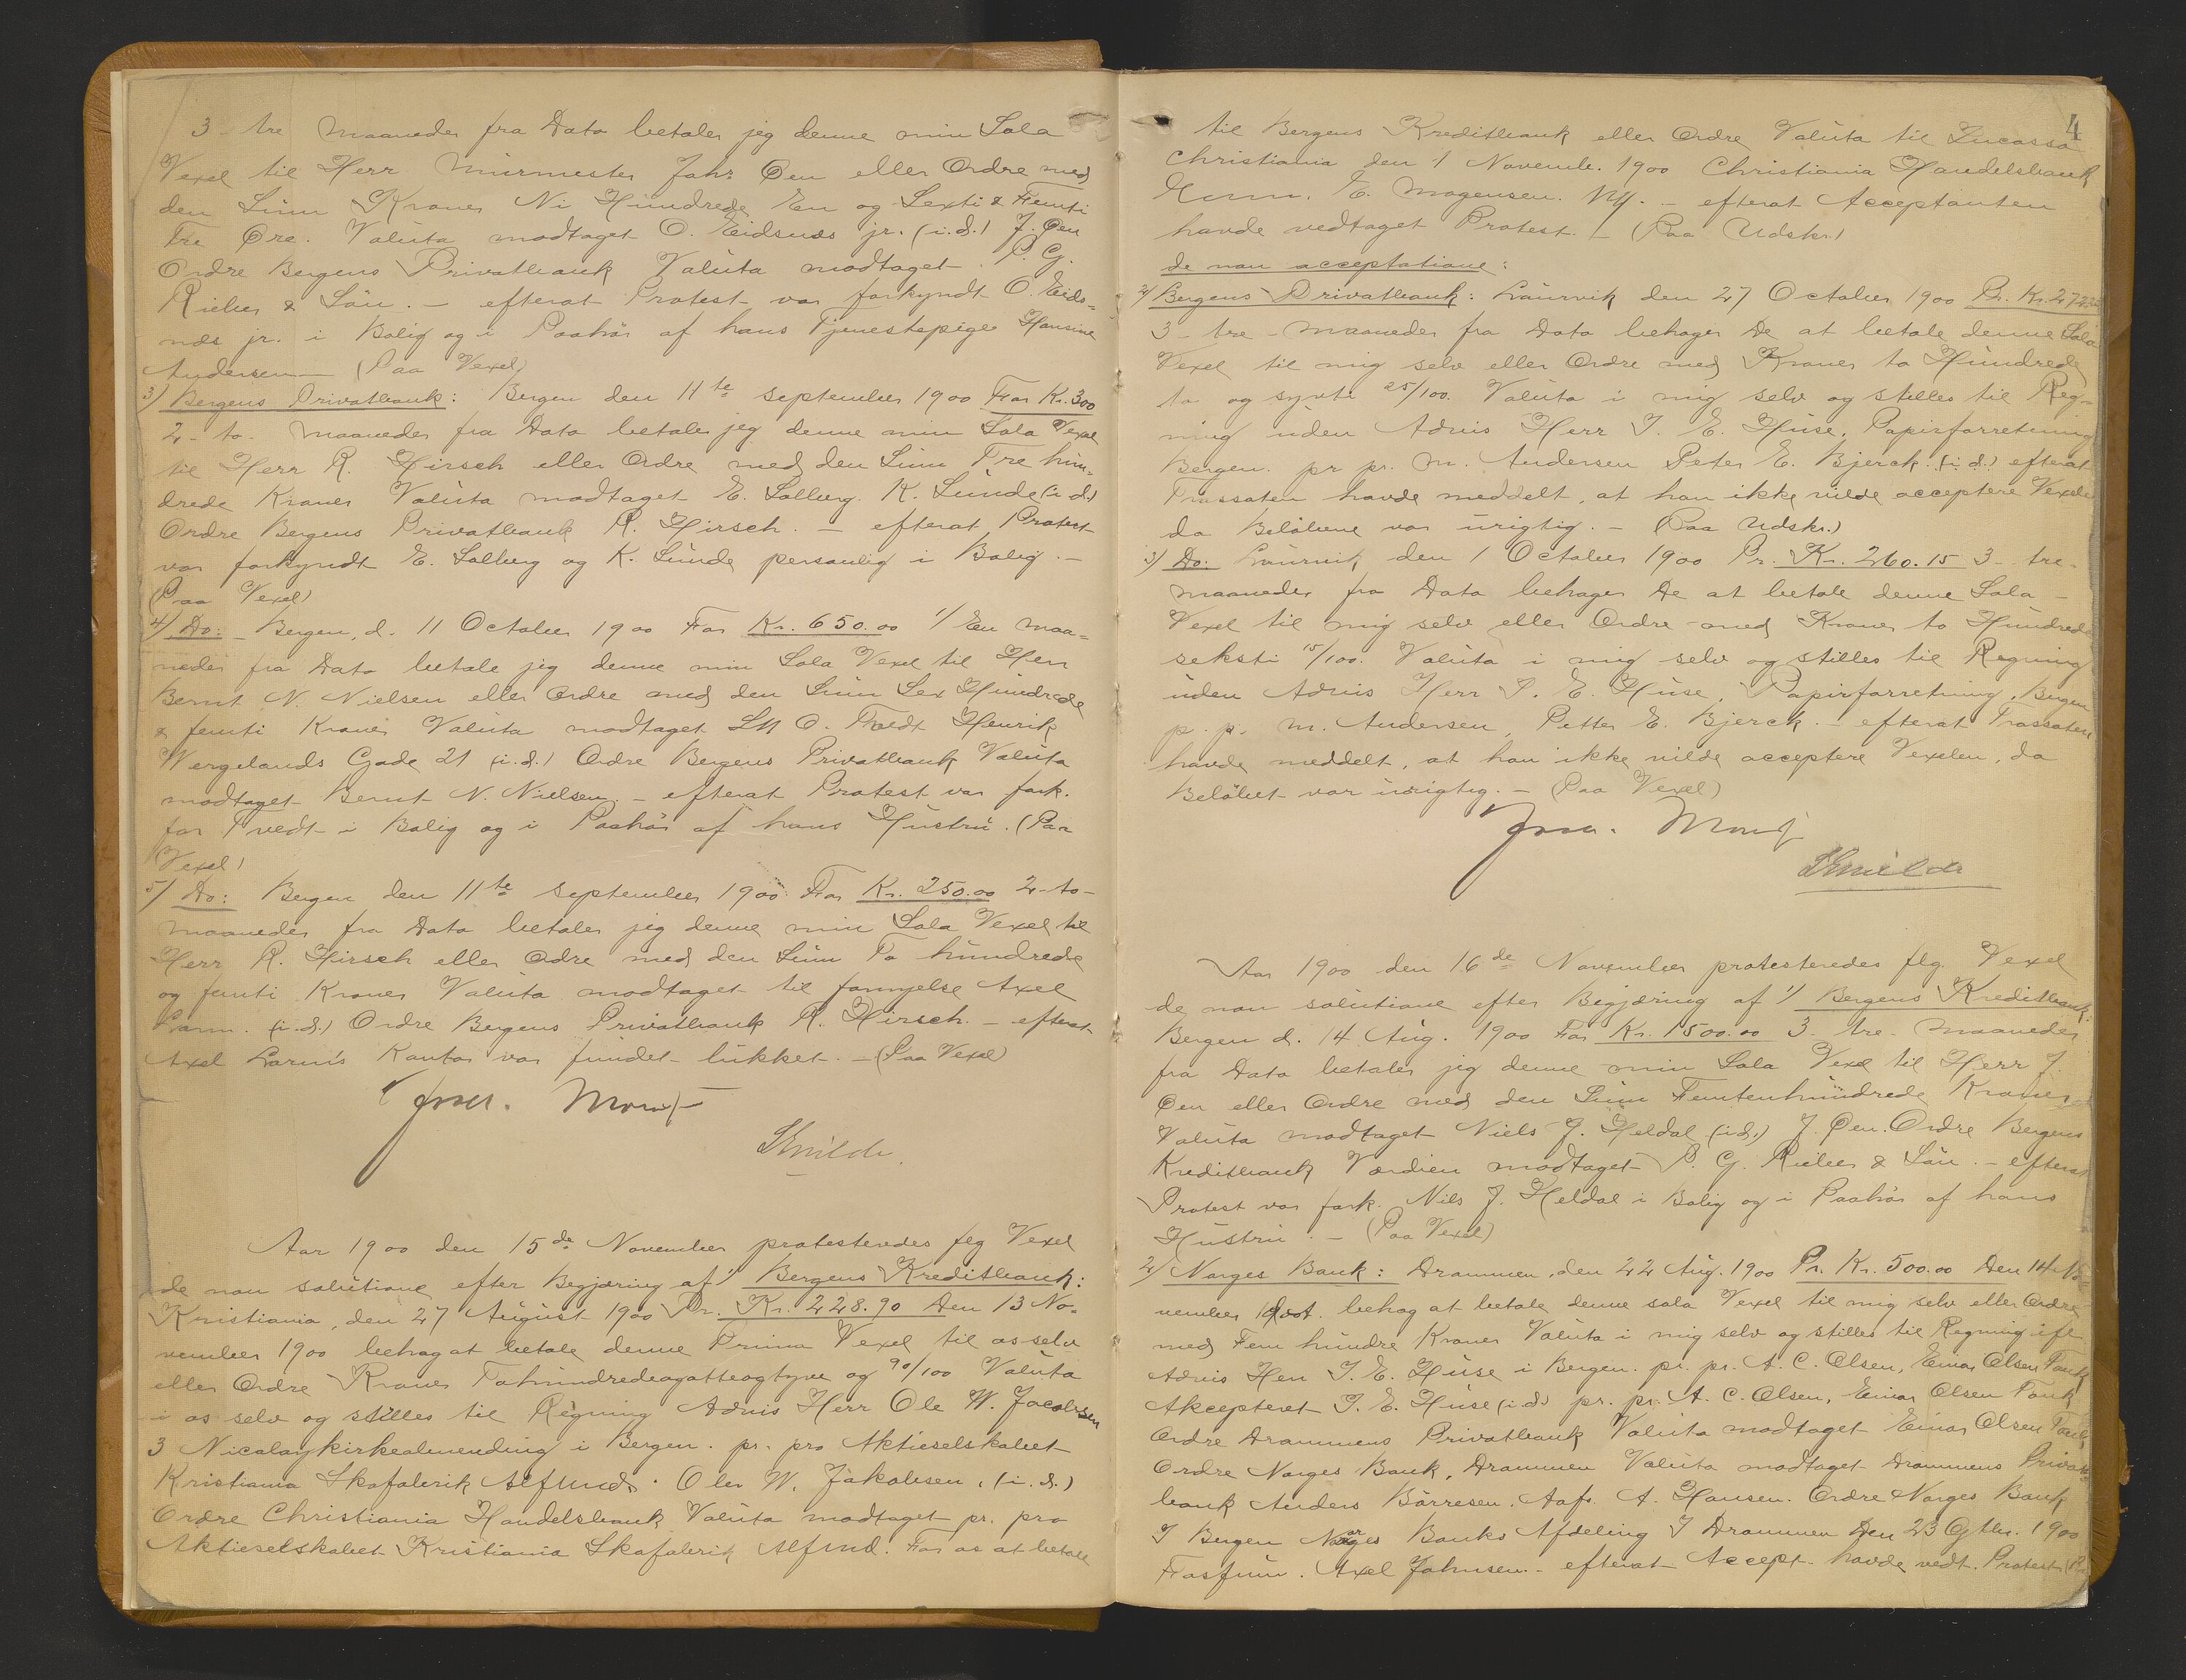 3 - tre Maaneder fra Dato betaler jeg denne min Sola
Vexel til Herr Murmester Johs Øen eller Ordre med
den Sum Kroner Ni Hundrede En og Sexti & Femti
Tre Øre. Valuta modtaget O. Eidsnes jr. (i.d.) J. Øen
Ordre Bergens Privatbank Valuta modtaget. P. G.
Rieber & Sön. – efterat Protest var forkyndt O. Eids=
næs jr. i Bolig og i Paahör af hans Tjenestepige Hansine
Andersen – (Paa Vexel)
3) Bergens Privatbank: Bergen den 11te september 1900 For Kr. 300
2 - to - Maaneder fra Dato betaler jeg denne min Sola Vexel
til Herr R. Hirsch eller Ordre med den Sum Tre hun=
drede Kroner Valuta modtaget E. Solberg. K. Lunde (i.d.)
Ordre Bergens Privatbank R. Hirsch. – efterat Protest
var forkyndt E. Solberg og K. Lunde personlig i Bolig. –
(Paa Vexel)
4) Do: – Bergen, d. 11 October 1900 For Kr. 650.00 1/ En Maa=
neder fra Dato betale jeg denne min Sola Vexel til Herr
Bernt N. Nielsen eller Ordre med den Sum Sex Hundrede
& femti Kroner Valuta modtaget O. Tvedt Henrik
Wergelands Gade 21 (i.d.) Ordre Bergens Privatbank Valuta
modtaget Bernt N. Nielsen. – efterat Protest var fork.
for Tvedt i Bolig og i Paahör af hans Hustru. (Paa
Vexel)
5) Do: Bergen den 11te september 1900 For Kr. 250.00 2 - to -
Maaneder fra Dato betaler jeg denne min Sola Vexel til
Herr R. Hirsch eller Ordre med den Sum To hundrede
og femti Kroner Valuta modtaget til fornyelse Axel
Larm. (i.d.) Ordre Bergens Privatbank R. Hirsch. – efterat
Axel Larms Kontor var fundet lukket. – (Paa Vexel)
Smilde
Aar 1900 den 15de November protesteredes flg Vexel
de non solutione efter Begjæring af 1/ Bergens Kreditbank:
Kristiania, den 27 August 1900 Pr. Kr. 228.90 Den 13 No=
vember 1900 behag at betale denne Prima Vexel til os selv
eller Ordre Kroner Tohundredeogotteogtyve og 90/100 Valuta
i os selv og stilles til Regning Advis Herr Ole W. Jacobsen
3 Nicolaykirkealmending i Bergen. pr. pro Aktieselskabet
Kristiania Skofabrik Alfund. Ole W. Jakobsen. (i.d.)
Ordre Christiania Handelsbank Valuta modtaget pr. pro
Aktieselskabet Kristiania Skofabrik Alfund. For os at betale
4
til Bergens Kreditbank eller Ordre Valuta til Incasso
Christiania den 1 Novemb. 1900 Christiania Handelsbank
E. Mogensen. – efterat Acceptanten
havde vedtaget Protest. – (Paa Udskr.)
de non acceptatione:
2) Bergens Privatbank: Laurvik den 27 October 1900 Pr. Kr. 272.25
3 - tre - Maaneder fra Dato behager De at betale denne Sola
Vexel til mig selv eller Ordre med Kroner to Hundrede
to og sytti 25/100. Valuta i mig selv og stilles til Reg=
ning uden Advis Herr I. E. Huse, Papirforretning
Bergen. pr pr. M. Andersen Peter E. Bjerck. (i.d.) efterat
Trassaten havde meddelt, at han ikke vilde acceptere Vexelen
da Belöbene var urigtig. – (Paa Udskr.)
3) Do: Laurvik den 1 October 1900 Pr. Kr. 260.15 3 - tre -
Maaneder fra Dato behager De at betale denne Sola -
Vexel til mig selv eller Ordre med Kroner to Hundrede
seksti 15/100. Valuta i mig selv og stilles til Regning
uden Advis Herr I. E. Huse, Papirforretning, Bergen
p. p. M. Andersen, Petter E. Bjerck. – efterat Trassaten
havde meddelt, at han ikke vilde acceptere Vexelen, da
Belöbet var urigtig. – (Paa Vexel)
Smilde
Aar 1900 den 16de November protesteredes flg. Vexel
de non solutione efter Begjæring af 1/ Bergens Kreditbank:
Bergen d. 14 Aug. 1900 For Kr. 1500.00 3 - tre - Maaneder
fra Dato betaler jeg denne min Sola Vexel til Herr J.
Øen eller Ordre med den Sum Femtenhundrede Kroner
Valuta modtaget Niels J. Heldal (i.d.) J. Øen. Ordre Bergens
Kreditbank Værdien modtaget P. G. Rieber & Sön. – efterat
Protest var fork. Nils J. Heldal i Bolig og i Paahör af hans
Hustru. – (Paa Vexel)
2) Norges Bank: Drammen, den 22 Aug. 1900 Pr. Kr. 500.00 Den 14 No=
vember behag at betale denne sola Vexel til mig selv eller Ordre
med Fem hundre Kroner Valuta i mig selv og stilles til Regning ifl
Advis Herr I. E. Huse i Bergen. pr. pr. A. C. Olsen, Einar Olsen Fauk
Akcepteret I. E. Huse (i.d.) pr. pr. A. C. Olsen, Einar Olsen Fauk
Ordre Drammens Privatbank Valuta modtaget Einar Olsen Fauk
Ordre Norges Bank, Drammen Valuta modtaget Drammens Privat=
bank Anders Börresen. A. Hansen. Ordre Norges Bank
I Bergen Norges Banks Afdeling I Drammen Den 23 1900
Axel Johnsen. – efterat Accept. havde vedt. Protest